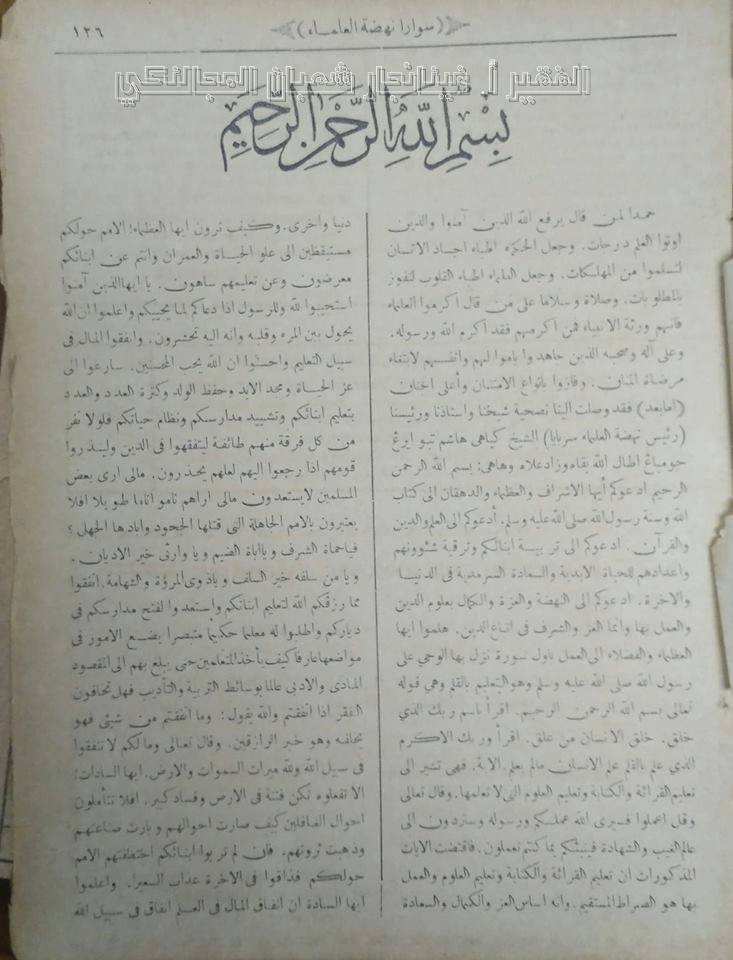 (سوارا نهضة العلماء)
١٢٦
الفقير أ. غينانجار شعبان المجالنكي
بِسْمِ اللَّهِ الرَّحْمَنِ الرَّحِيمِ
حمدا لمن قال يرفع الله الذين آمنوا والذين
اوتوا العلم درجات. وجعل الحكماء اطباء اجساد الانسان
لتسلموا من المهلكات. وجعل العلماء اطباء القلوب لتفوز
بالمطلوبات. وصلاة وسلاما على من قال أكرموا العلماء
فانهم ورثة الانبياء فمن اكرمهم فقد أكرم الله ورسوله.
وعلى آله وصحبه الذين جاهدوا باموالهم وانفسهم لابتغاء
مرضاة المنان. وفازوا بانواع الامتنان وأعلى الجنان
(امابعد) فقد وصلت الينا نصحية شيخنا واستاذنا ورئيسنا
(رئيس نهضة العلماء سربايا) الشيخ كياهى هاشم تبو ايرڠ
جومباڠ اطال الله بقاه وزاد علاه وهاهى: بسم الله الرحمن
الرحيم ادعوكم أيها الاشراف والعظماء والدهقان الى كتاب
الله وسنة رسول الله صلى الله عليه وسلم. أدعوكم الى العلم والدين
والقرآن. ادعوكم الى تربية ابنائكم وترقية شئوونهم
واعدادهم للحياة الابدية والسعادة السرمدية فى الدنيا
والاخرة. ادعوكم الى النهضة والعزة والكمال بعلوم الدين
والعمل بها وانما العز والشرف فى اتباع الدين. هلموا ايها
العظماء والفضلاء الى العمل باول سورة نزل بها الوحي على
رسول الله صلى الله عليه وسلم وهو التعليم بالقلم وهي قوله
تعالى بسم الله الرحمن الرحيم. اقرأ باسم ربك الذي
خلق. خلق الانسان من علق. اقرأ وربك الاكرم
الذي علم بالقلم علم الانسان مالم يعلم. الاية. فهى تشير الى
تعليم القرائة والكتابة وتعليم العلوم التى لا تعلمها. وقال تعالى
وقل اعملوا فسيرى الله عملكم ورسوله وستردون الى
عالم الغيب والشهادة فينبئكم بما كنتم تعملون. فاقتضت الايات
المذكورات ان تعليم القرائة والكتابة وتعليم العلوم والعمل
بها هو الصراط المستقيم. وانه اساس العز والكمال والسعادة
دنيا واخرى. وكيف ترون ايها العظماء! الامم حولكم
مستيقظين الى علو الحياة والعمران وانتم عن ابنائكم
معرضون وعن تعليمهم ساهون. يا ايها الذين آمنوا
استجيبوا لله وللرسول اذا دعاكم لما يحييكم واعلموا ان الله
يحول بين المرء وقلبه وانه اليه تحشرون. وانفقوا المال فى
سبيل التعليم واحسنوا ان الله يحب المحسنين. سارعوا الى
عز الحياة ومجد الابد وحفظ الولد وكثرة العدد والعدد
بتعليم ابنائكم وتشييد مدارسكم ونظام حياتكم فلولا نفر
من كل فرقة منهم طائفة ليتفقهوا فى الدين ولينذروا
قومهم اذا رجعوا اليهم لعلهم يحذرون. مالى ارى بعض
المسلمين لايستعدون مالى اراهم ناموا اناما طويلا افلا
يعتبرون بالامم الجاهلة التى قتلها الجحود وابادها الجهل؟
فياحماة الشرف وياأباة الضيم ويا وارثى خير الاديان.
ويا من سلفه خير السلف وياذوى المروؤة والشهامة. انفقوا
مما رزقكم الله لتعليم ابنائكم واستعدوا لفتح مدارسكم فى
دياركم واطلبوا له معلما حكيما متبصرا يضع الامور فى
مواضعها عارفا كيف يأخذ المتعلمين حتى يبلغ بهم الى المقصود
المادى والادبى عالما بوسائط التربية والتأديب فهل تخافون
الفقر اذا انفقتم والله يقول: وما انفقتم من شيئى فهو
يخلفه وهو خير الرازقين. وقال تعالى ومالكم لا تنفقوا
فى سبيل الله ولله ميراث السموات والارض. ايها السادات:
الا تفعلوه تكن فتنة فى الارض وفساد كبير. افلا تتأملون
احوال الغافلين كيف صارت احوالهم وبارت صناعتهم
وذهبت ثروتهم. فان لم تربوا ابنائكم اختطفتهم الامم
حولكم فذاقوا فى الاخرة عذاب السعير. واعلموا
ايها السادة ان انفاق المال فى العلم انفاق فى سبيل الله